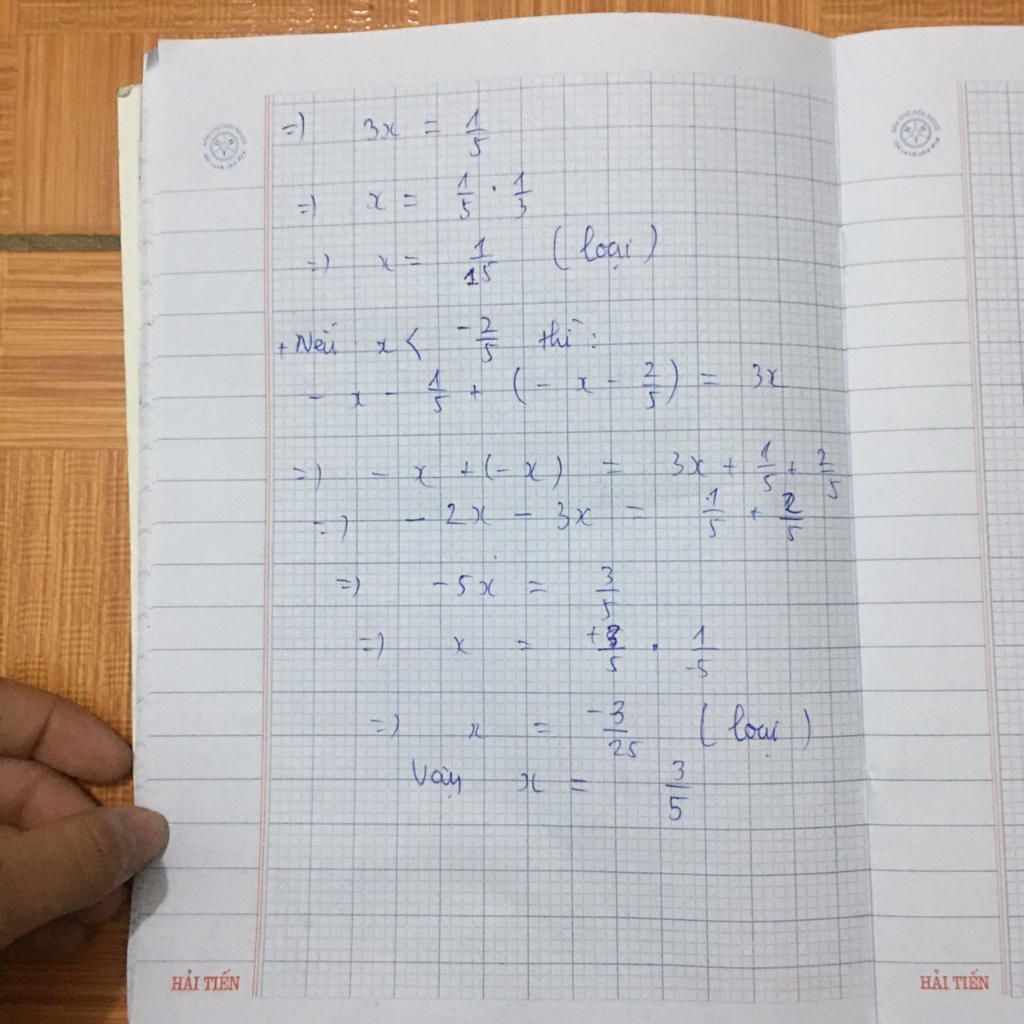 =) 3x = 1/5
=) x = 1/5 . 1/3
=) x = 1/15 (loại)
+ Nếu x < -2/5 thì :
- x - 1/5 + (- x - 2/5) = 3x
=) - x + (- x) = 3x + 1/5 + 2/5
=) - 2x - 3x = 1/5 + 2/5
=) -5x = 3/5
=) x = +3/5 . 1/-5
=) x = -3/25 (loại)
Vậy x = 3/5
HẢI TIẾN
HẢI TIẾN